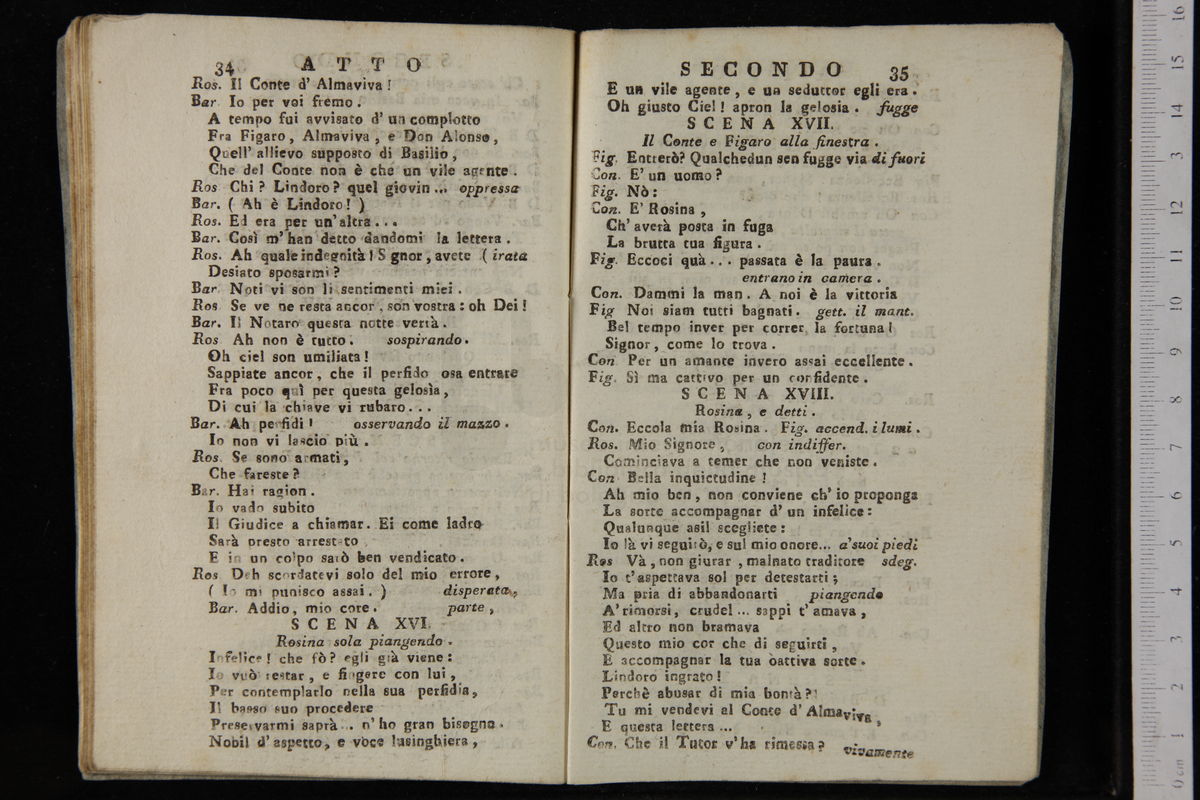 34 ATTO
Ros. Il Conte d' Almaviva !
Bar Io per voi fremo .
A tempo fui avvisato d' un complotto
Fra Figaro, Almaviva , e Don Alonso,
Quell' allievo supposto di Basilio ,
Che del Conte non è che un vile agente .
Ros Chi ? Lindoro ? quel giovin ... oppressa
Bar. ( Ah è Lindoro ! )
Ros. Ed era per un' altra . . .
Bar. Così m' han detto dandomi la lettera .
Ros. Ah quale indegnità ! S gnor , avete ( irata
Desiato sposarmi ?
Bar. Noti vi son li sentimenti miei .
Ros. Se ve ne resta ancor , son vostra : oh Dei !
Bar. Il Notaro questa notte verrà .
Ros Ah non è tutto . sospirando .
Oh ciel son umiliata !
Sappiate ancor, che il perfido osa entrare
Fra poco quì per questa gelosìa ,
Di cui la chiave vi rubaro . . .
Bar. Ah perfidi ! osservando il mazzo .
Io non vi lascio più .
Ros. Se sono armati ,
Che fareste ?
Bar. Hai ragion .
Io vado subito
Il Giudice a chiamar. Ei come ladro
Sarà presto arrestato
E in un colpo sarò ben vendicato .
Ros Deh scordatevi solo del mio errore ,
( Io mi punisco assai . ) disperata ,
Bar. Addio, mio core . parte ,
SCENA XVI.
Rosina sola piangendo .
Infelice ! che fò ? egli già viene :
Io vuò restar , e fingere con lui ,
Per contemplarlo nella sua perfidia ,
Il basso suo procedere
Preservarmi saprà ... n' ho gran bisogno .
Nobil d' aspetto , e voce lusinghiera ,
SECONDO 35
E un vile agente , e un seduttor egli era .
Oh giusto Ciel ! apron la gelosia . fugge
SCENA XVII.
Il Conte e Figaro alla finestra .
Fig. Entrerò? Qualchedun sen fugge via di fuori
Con. E' un uomo ?
Fig. Nò :
Con. E' Rosina ,
Ch' averà posta in fuga
La brutta tua figura .
Fig. Eccoci quà . . . passata è la paura .
entrano in camera .
Con. Dammi la man . A noi è la vittoria
Fig Noi siam tutti bagnati . gett. il mant.
Bel tempo inver per correr la fortuna !
Signor , come lo trova .
Con. Per un amante invero assai eccellente .
Fig. Sì ma cattivo per un confidente .
SCENA XVIII.
Rosina , e detti .
Con. Eccola mia Rosina . Fig. accend. i lumi .
Ros. Mio Signore , con indiffer.
Cominciava a temer che non veniste .
Con Bella inquietudine !
Ah mio ben , non conviene ch' io proponga
La sorte accompagnar d' un infelice :
Qualunque asil scegliete :
Io là vi seguirò, e sul mio onore... a' suoi piedi
Ros Và , non giurar , malnato traditore sdeg.
Io t' aspettava sol per detestarti ;
Ma pria di abbandonarti piangendo
A' rimorsi, crudel ... sappi t' amava ,
Ed altro non bramava
Questo mio cor che di seguirti ,
E accompagnar la tua òattiva sorte .
Lindoro ingrato !
Perchè abusar di mia bontà ?
Tu mi vendevi al Conte d' Almaviva ,
E questa lettera ...
Con. Che il Tutor v' ha rimessa ? vivamente
0 cm 1 2 3 4 5 6 7 8 9 10 11 12 13 14 15 16